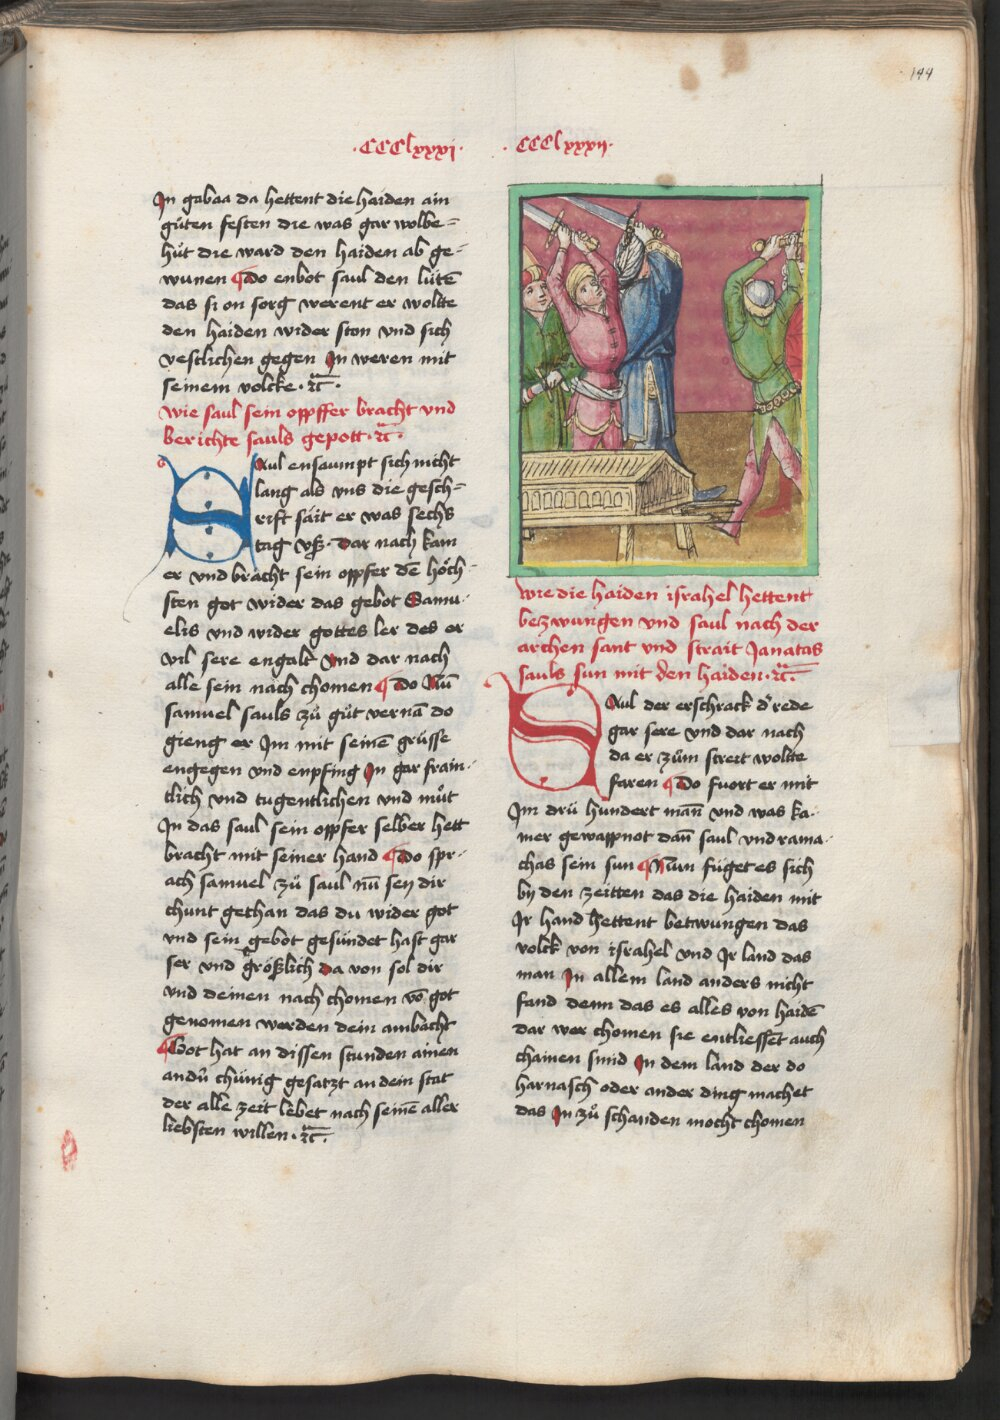 144
·CCClxxxi·
·CCClxxxii·
In gabaa da hettent die haiden ain
gůten festen die was gar wolbe=
hůt die ward den haiden ab ge=
wunen Do enbot saul den lütē
das si on sorg werent er wollte
den haiden wider ston vnd sich
vestlichen gegen In weren mit
seinem volcke · ꝛc̄ ·
wie saul sein opffer bracht vnd
berichte sauls gepott · ꝛc̄ ·
SAul ensaumpt sich nicht
lang als vns die gesch=
rift säit er was sechs
tag vß · Dar nach kam
er vnd brächt sein opffer dē höch=
sten got wider das gebot Samu=
elis vnd wider gottes ler des er
vil sere engalt Vnd dar nach
alle sein nach chomen Do Nun
samuel sauls zů gůt vernā do
gieng er Im mit seinē grüsse
engegen vnd enpfing In gar frain=
tlich vnd tugentlichen vnd můt
In das saul sein opffer selber hett
bracht mit seiner hand Do spr=
ach samuel zů saul nū sey dir
chunt gethan das du wider got
vnd sein gebot gesündet hast gar
ser vnd größlich Da von sol dir
vnd deinen nach chomen vō got
genomen werden dein ambacht
Got hat an dissen stunden ainen
andn̄ chünig gesatzt an dein stat
der alle zeit lebet nach seinē aller
liebsten willen · ꝛc̄ ·
wie die haiden israhel hettent
bezwungen vnd saul nach der
archen sant vnd strait Janatas
sauls sun mit den haiden · ꝛc̄ ·
SAul der erschrack d' rede
gar sere vnd dar nach
da er zům streit wollte
faren Do fuort er mit
Im drü hundert mañ vnd was ka=
mer gewappnot dañ saul vnd rama=
chas sein sun Nun füget es sich
bij den zeitten das die haiden mit
Ir hand hettent betwungen das
volck von israhel vnd Ir land das
man In allem land anders nicht
fand denn das es alles von haidē
dar wer chomen sie entliessēt auch
chainen smid In dem land der do
harnasch oder ander ding machet
das In zů schanden mocht chomen